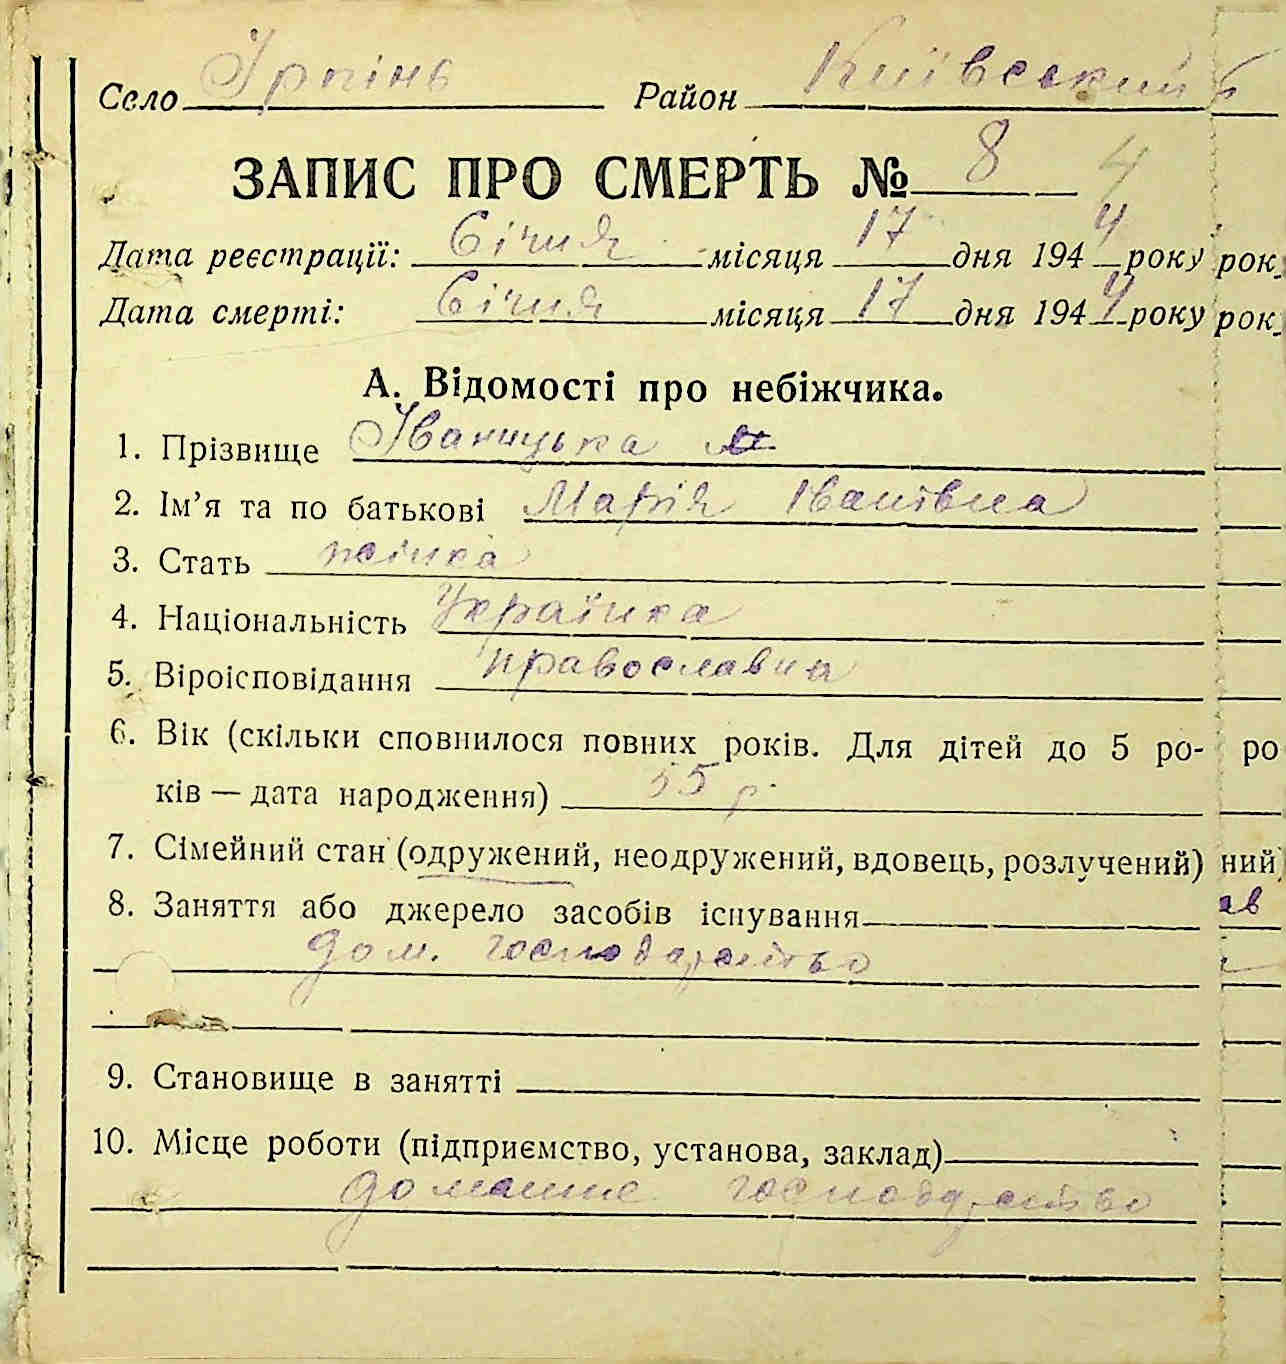 Село Ірпінь Район Київський
ЗАПИС ПРО СМЕРТЬ № 8 4
Дата реєстрації: Січня місяця 17 дня 1944 року рок
Дата смерті: Січня місяця 17 дня 1944 року рок
А. Відомості про небіжчика.
1. Прізвище Іваницька
2. Ім’я та по батькові Марія Іванівна
3. Стать жінка
4. Національність Українка
5. Віроісповідання православна
6. Вік (скільки сповнилося повних років. Для дітей до 5 ро- ро
ків — дата народження) 55 р.
7. Сімейний стан (одружений, неодружений, вдовець, розлучений) ний)
8. Заняття або джерело засобів існування ав
дом. господарство
9. Становище в занятті
10. Місце роботи (підприємство, установа, заклад)
домашнє господарство